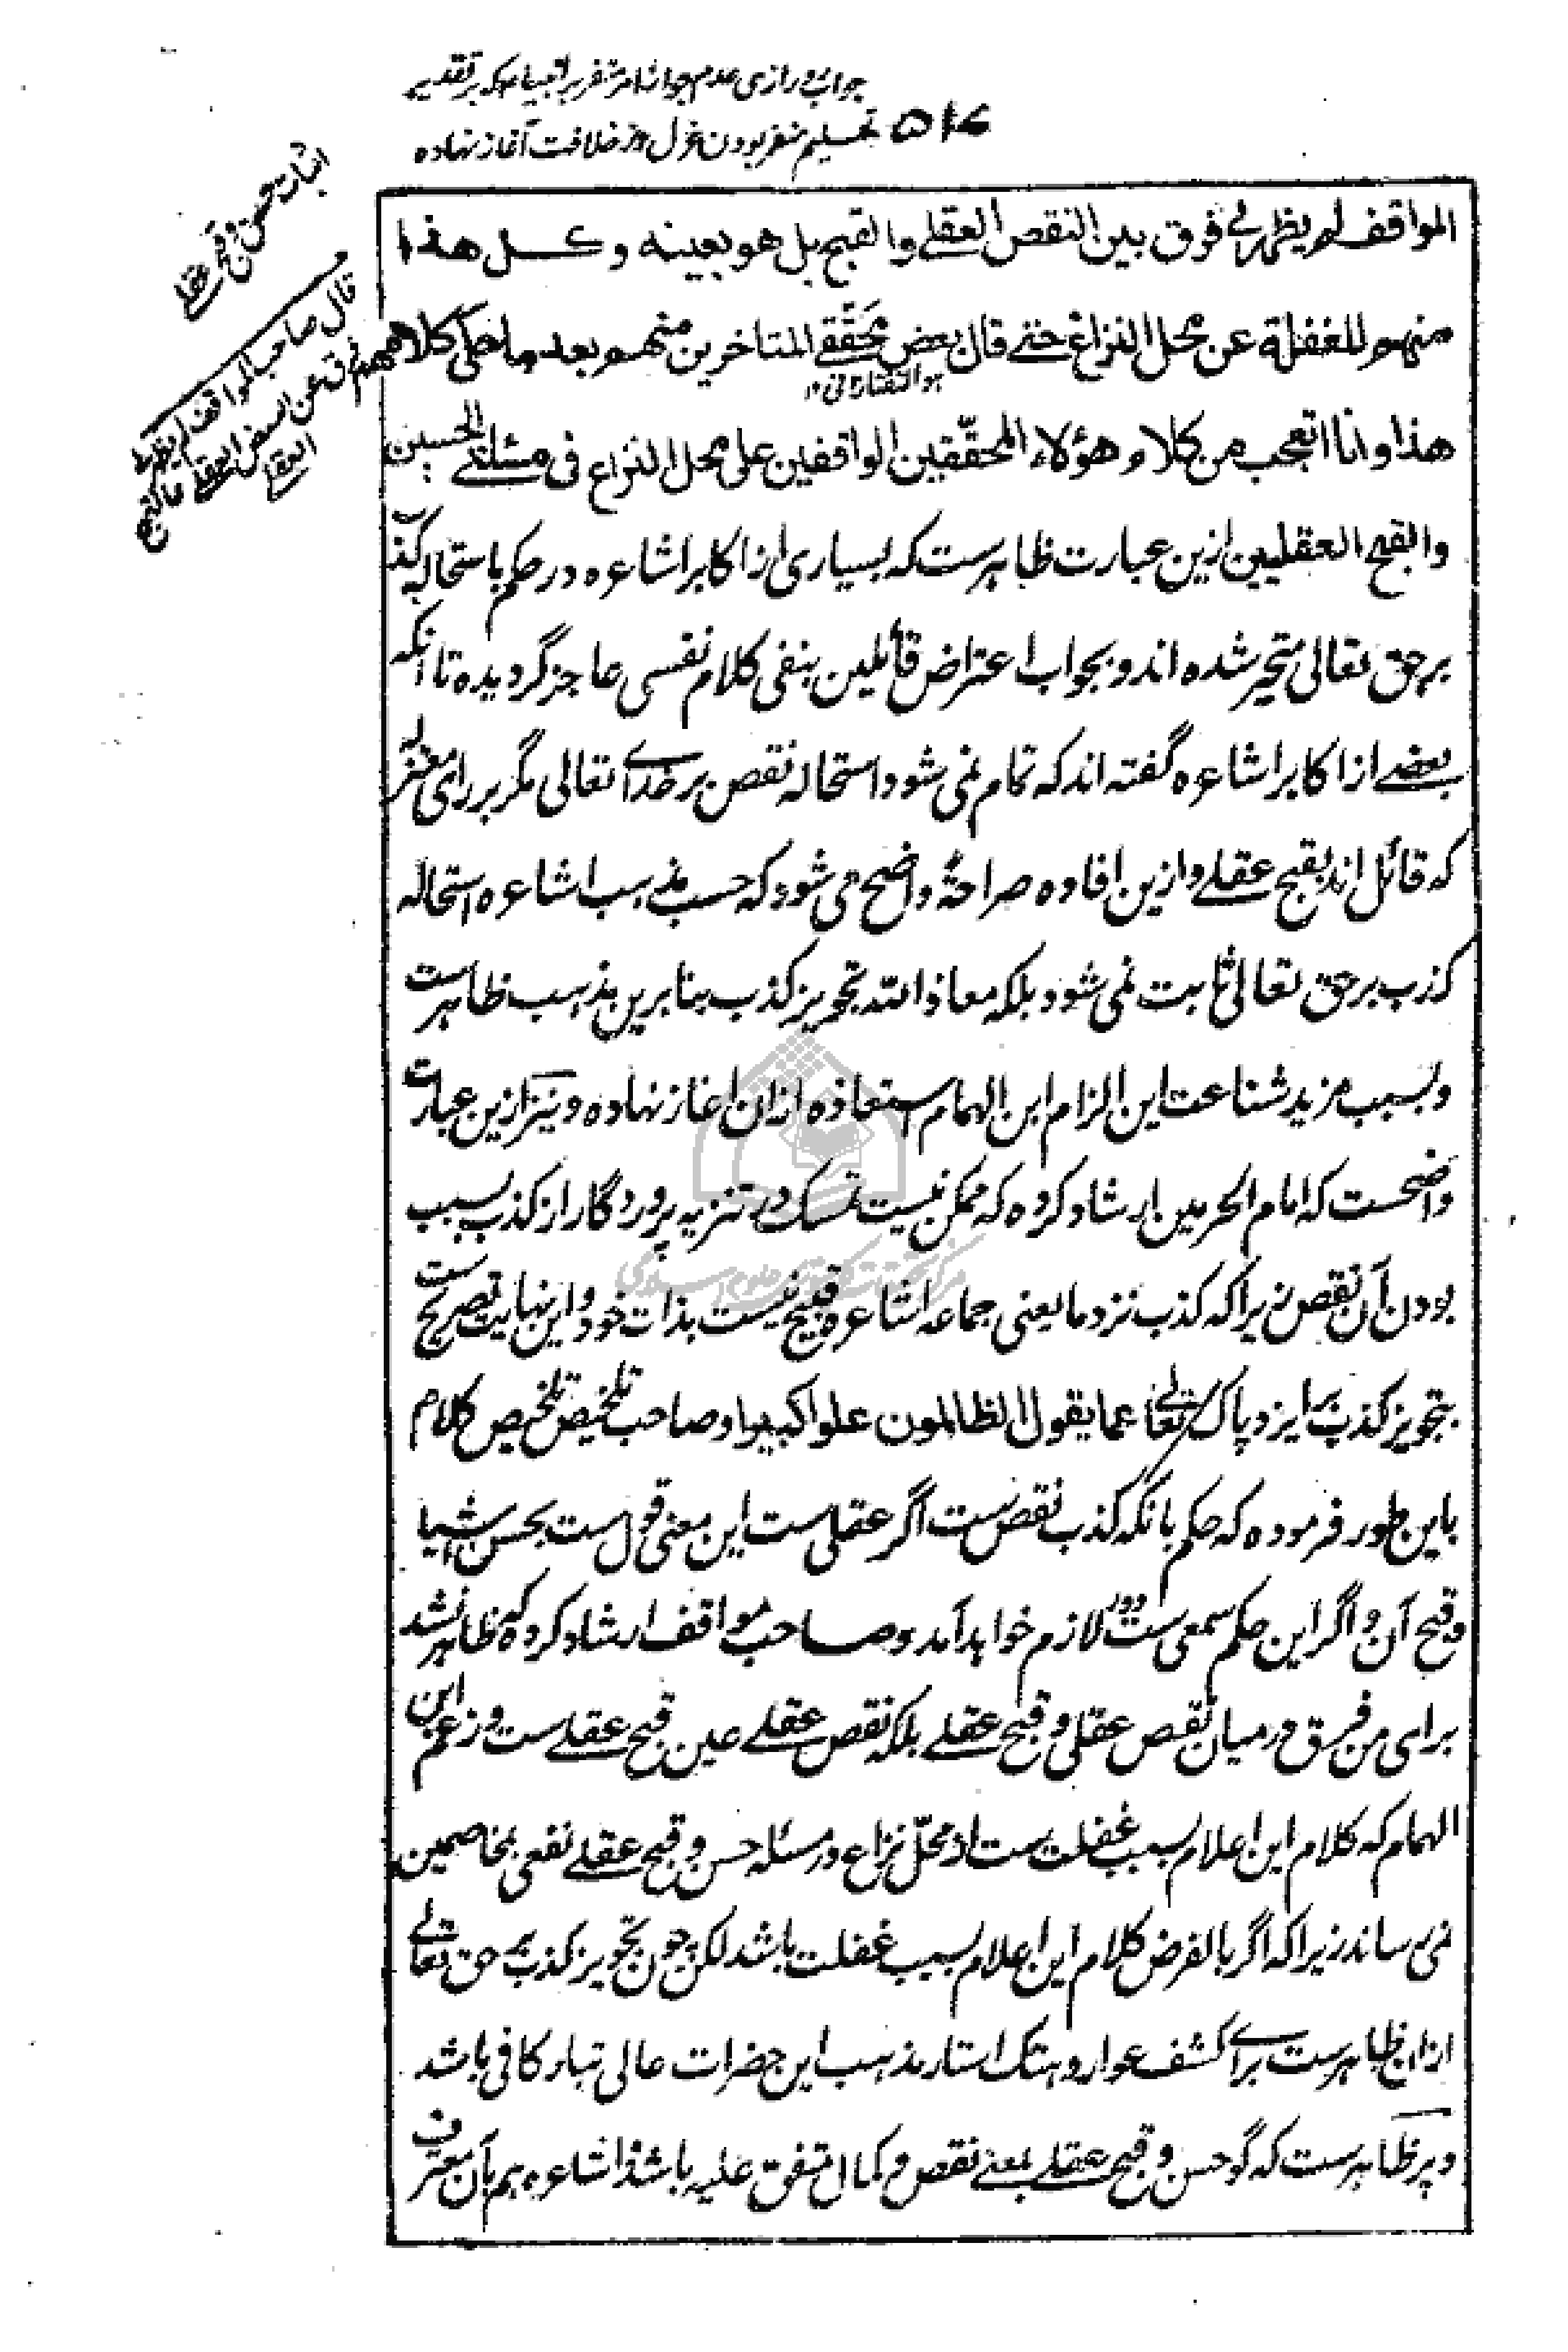 جواب رازی عدم جواز امر منفر بر انبیا که بر تقدیر
۵۱۷ تسلیم منفر بودن عزل از خلافت آغاز نهاده
اثبات حسن و قبح عقلی
قال صاحب المواقف لم يظهر لی
فرق بین النقص العقلی والقبح
العقلی
المواقف لم یظهر لی فرق بین النقص العقلے والقبح بل هو بعینه وکل هذا
منهم للغفلة عن محل النزاع حتے قال بعض محقّقے المتاخرین منهم بعد ما حکی کلامهم
هو التفتازانی
هذا وانا اتعجب من کلام هؤلاء المحقّقین الواقفین علی محل النزاع فی مسئلتے الحسین
والقبح العقلیین ازین عبارت ظاهرست که بسیاری از اکابر اشاعره در حکم باستحاله کذب
بر حق تعالی متحیر شده اند و بجواب اعتراض قائلین بنفی کلام نفسی عاجز گردیده تا انکه
بعضے از اکابر اشاعره گفته اند که تمام نمی شود استحاله نقص بر خدای تعالی مگر بر رای معتزله
که قائل اند بقبح عقلے و ازین افاده صراحةً واضح می شود که حسب مذهب اشاعره استحاله
کذب بر حق تعالی ثابت نمی شود بلکه معاذ الله تجویز کذب بنابرین مذهب ظاهرست
و بسبب مزید شناعت این الزام ابن الهمام استعاذه ازان اغاز نهاده و نیز ازین عبارت
واضحست که امام الحرمین ارشاد کرده که ممکن نیست تمسک در تنزیه پروردگار از کذب بسبب
بودن آن نقص زیرا که کذب نزد ما یعنی جماعه اشاعره قبیح نیست بذات خود و این نهایت تصریح ست
بتجویز کذب بر ایزد پاک تعالی عما یقول الظالمون علوا کبیرا و صاحب تلخیص تلخیص کلام
باین طور فرموده که حکم بانکه کذب نقص ست اگر عقلی ست این معنی قول ست بحسن اشیا
و قبح آن و اگر این حکم سمعی ست دور لازم خواهد آمد و صاحب مواقف ارشاد کرده که ظاهر نشد
برای من فرق در میان نقص عقلی و قبح عقلے بلکه نقص عقلے عین قبح عقلے ست و زعم ابن
الهمام که کلام این اعلام بسبب غفلت ست از محلّ نزاع در مسئله حسن و قبح عقلے نفعی بمخاصمین
نمی رساند زیرا که اگر بالفرض کلام این اعلام بسبب غفلت باشد لکن چون تجویز کذب بر حق تعالے
ازان ظاهرست برای کشف عوار و هتک استار مذهب این حضرات عالی تبار کافی باشد
و پر ظاهرست که گو حسن و قبح عقلے بمعنے نقص و کمال متفق علیه باشد و اشاعره هم بآن معترف